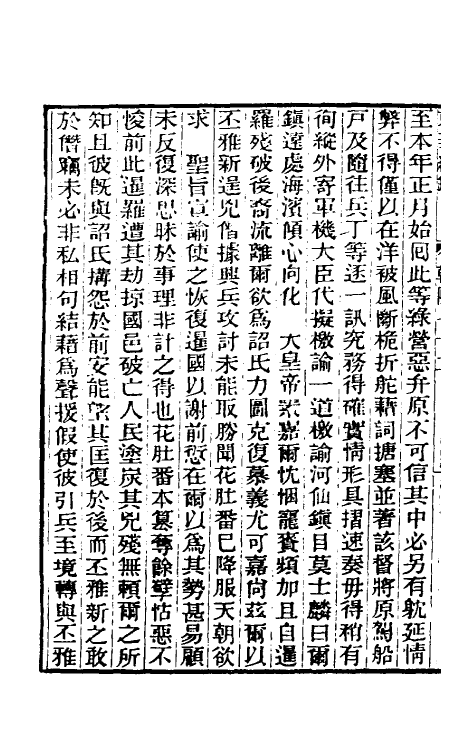 至本年正月始囘此等綠營惡弁原不可信其中必另有躭延情
弊不得僅以在洋被風斷桅折舵藉詞搪塞並著該督將原駕船
戸及隨往兵丁等逐一訊究務得確實情形具摺速奏毋得稍有
徇縱外寄軍機大臣代擬檄諭一道檄諭河仙鎭目莫士麟曰爾
鎭遠處海濱傾心向化　大皇帝深嘉爾忱悃寵賚頻加且自暹
羅殘破後裔流離爾欲爲詔氏力圖克復慕義尤可嘉尙兹爾以
丕雅新逞兇僭據興兵攻討未能取勝聞花肚番已降服天朝欲
求　聖旨宣諭使之恢復暹國以謝前愆在爾以爲其勢甚易顧
未反復深思昧於事理非計之得也花肚番本篡奪餘孽怙惡不
悛前此暹羅遭其劫掠國邑破亡人民塗炭其兇殘無賴爾之所
知且彼旣與詔氏搆怨於前安能望其匡復於後而丕雅新之敢
於僭竊未必非私相句結藉爲聲援假使彼引兵至境轉與丕雅